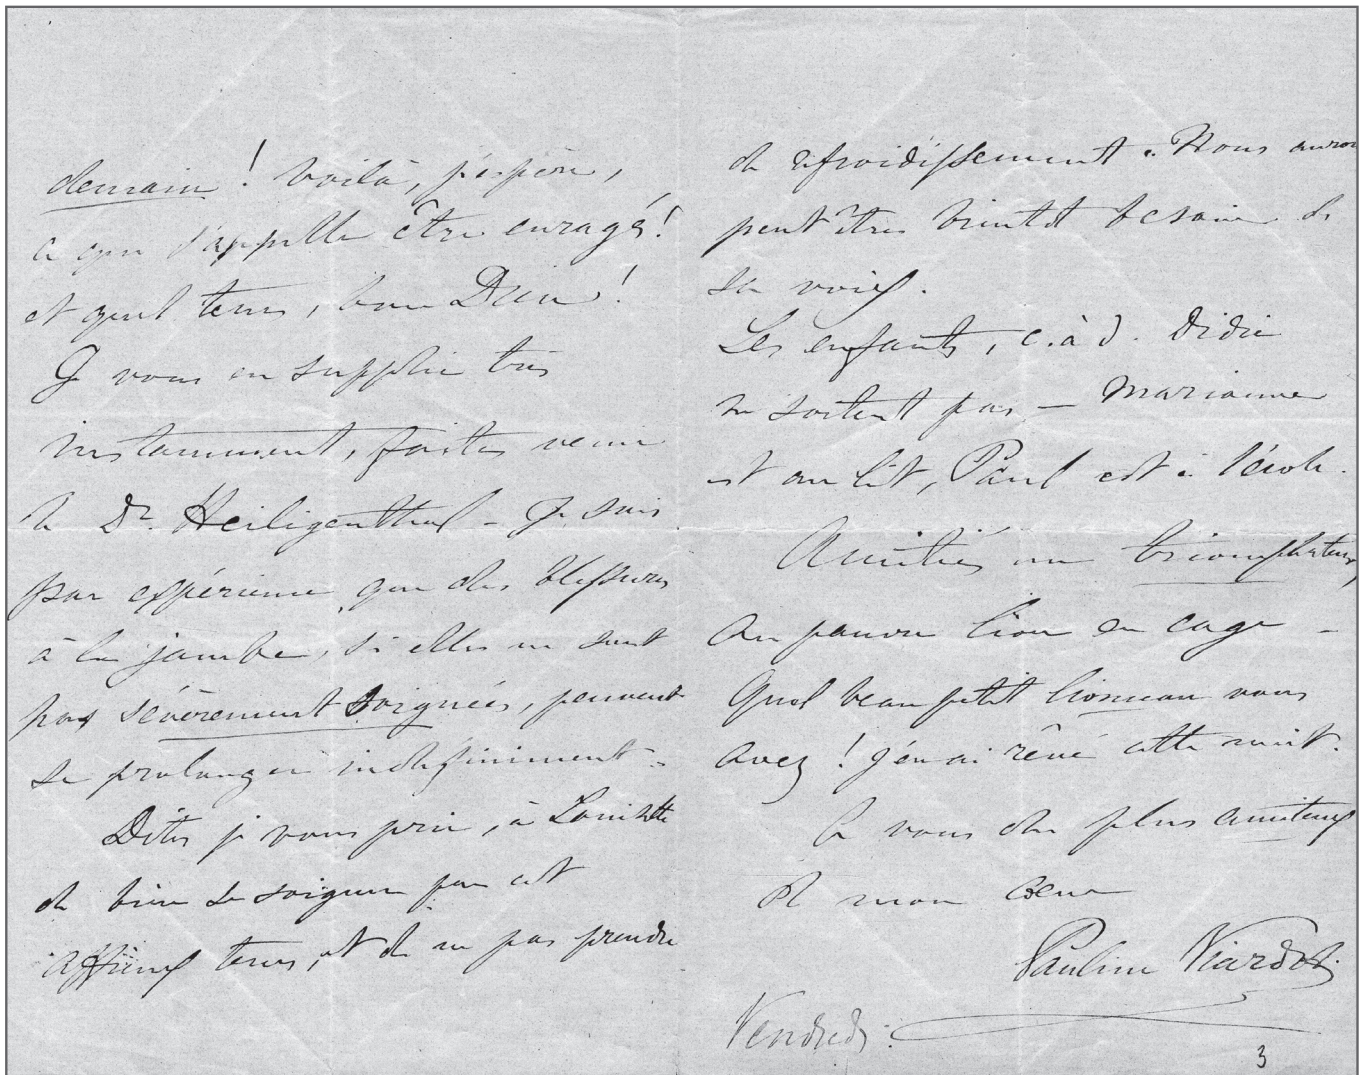 demain ! Voilà, j'espère,
ce qui s'appelle être enragé !
et quel tems, bon Dieu !
Je vous en supplie très
instamment, faites venir
le Dr Heiligenthal - Je sais
par expérience que des blessures
à la jambe, si elles ne sont
pas sévèrement soignées, peuvent
se prolonger indéfiniment -
Dites je vous prie, à Louisette
de bien se soigner par cet
affreux tems, et de ne pas prendre
de refroidissement. Nous aurons
peut être bientôt besoin de
sa voix.
Les enfants, c. à d. Didie
ne sortent pas - Marianne
est au lit, Paul est à l'école.
Amitiés au triomphateur,
au pauvre lion en cage -
Quel beau petit lionceau vous
avez ! J'en ai rêvé cette nuit.
A vous du plus amiteux
de mon cœur
Pauline Viardot.
Vendredi.
3